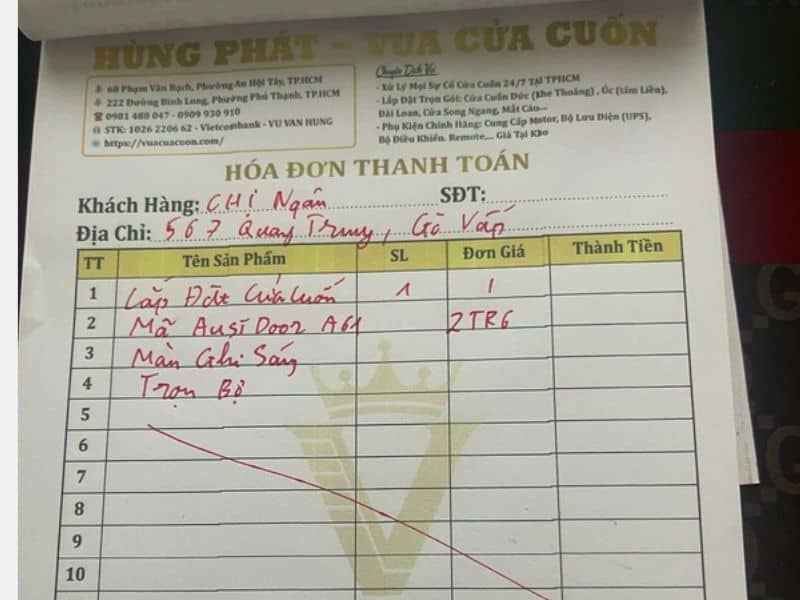 HÙNG PHÁT - VUA CỬA CUỐN
60 Phạm Văn Bạch, Phường An Hội Tây, TP.HCM
222 Đường Bình Long, Phường Phú Thạnh, TP.HCM
0981 480 047 - 0909 930 910
STK: 1026 2206 62 - Vietcombank - VU VAN HUNG
https://vuacuacuon.com/
Chuyên Dịch Vụ:
- Xử Lý Mọi Sự Cố Cửa Cuốn 24/7 TẠI TPHCM
- Lắp Đặt Trọn Gói: Cửa Cuốn Đức (Khe Thoáng) , Úc (tấm Liền),
Đài Loan, Cửa Song Ngang, Mắt Cáo...
- Phụ Kiện Chính Hãng: Cung Cấp Motor, Bộ Lưu Điện (UPS),
Bộ Điều Khiển. Remote,... Giá Tại Kho
HÓA ĐƠN THANH TOÁN
Khách Hàng: CHị Ngân SĐT:
Địa Chỉ: 567 Quang Trung, Gò Vấp
TT Tên Sản Phẩm SL Đơn Giá Thành Tiền
1 Lắp Đặt Cửa Cuốn 1 1
2 Mã AusiDoor A61 2TR6
3 Màn Ghi Sáng
4 Trọn Bộ
5
6
7
8
9
10